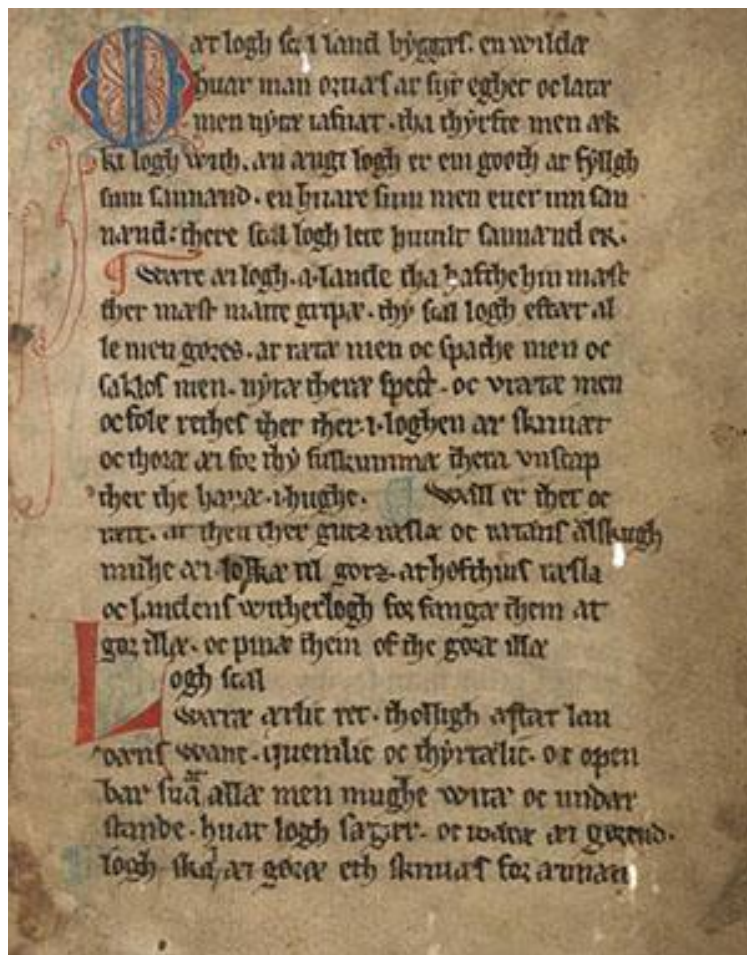 Mæt logh scal land byggæs. en wildæ
huar man oruæs at sijt eghet oc latæ
men nytæ iafnæt. tha thyrfte men æk
ki logh with. æn ængi logh er em gooth at fyllgh
sum sannænd. en huare sum men euer um san
nænd: there scal logh lete huilt sannænd er.
Ware æi logh. a. lande tha hafthe hin mæst
ther mæst matte gripæ. thy scal logh eftær al
le men gøres. at rætæ men oc spache men oc
sakløs men. nytæ theræ spect. oc vrætæ men
oc fole rethes ther ther. i. loghen ær skriuæt
oc thoræ æi for thy fulkummæ thera vnscap
ther the hauæ. i hughe. Wæll er thet oc
ræt. at then ther guz ræsla oc rætæns ælskugh
mughe æi lokkæ til goz. at høfthins ræsla
oc landens witherlogh for fangæ them at
gør illæ. oc pinæ them of the gøræ illæ
Logh scal
waræ ærlic ret. thollich æftær lan
dæns wane. quemlic oc thyrtælic. oc open
bar sua at allæ men mughe witæ oc undær
stande. huat logh sæger. oc waræ æi gørend.
logh skal æi gøræs eth skriuæs for annan